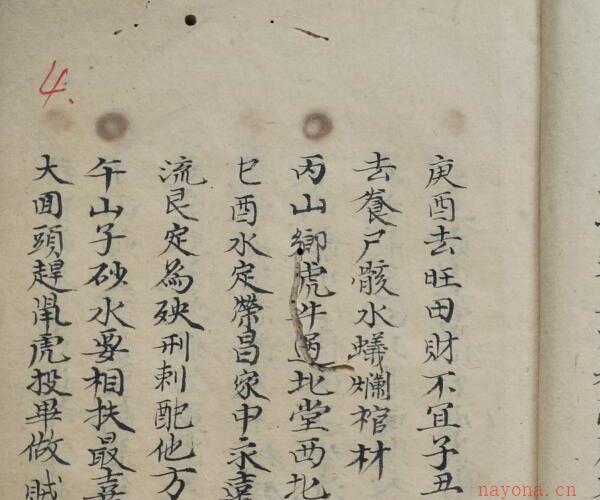 庚酉去旺田財不宜子丑
去養尸骸水蟻爛棺材
丙山鄉虎牛遇北堂西北
巳酉水定榮昌家中永喜
流艮定為殃刑刺配他方
午山子砂水要相扶最喜
大回頭趕鼠虎投畢做賊
4.
nayona.cn